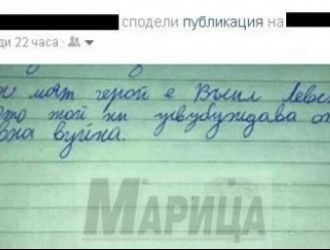 сподели публикация на
ди 22 часа
моят герой е Въсил Левс
той ни узвубуждава от
вна вуйна.
МАРИЦА